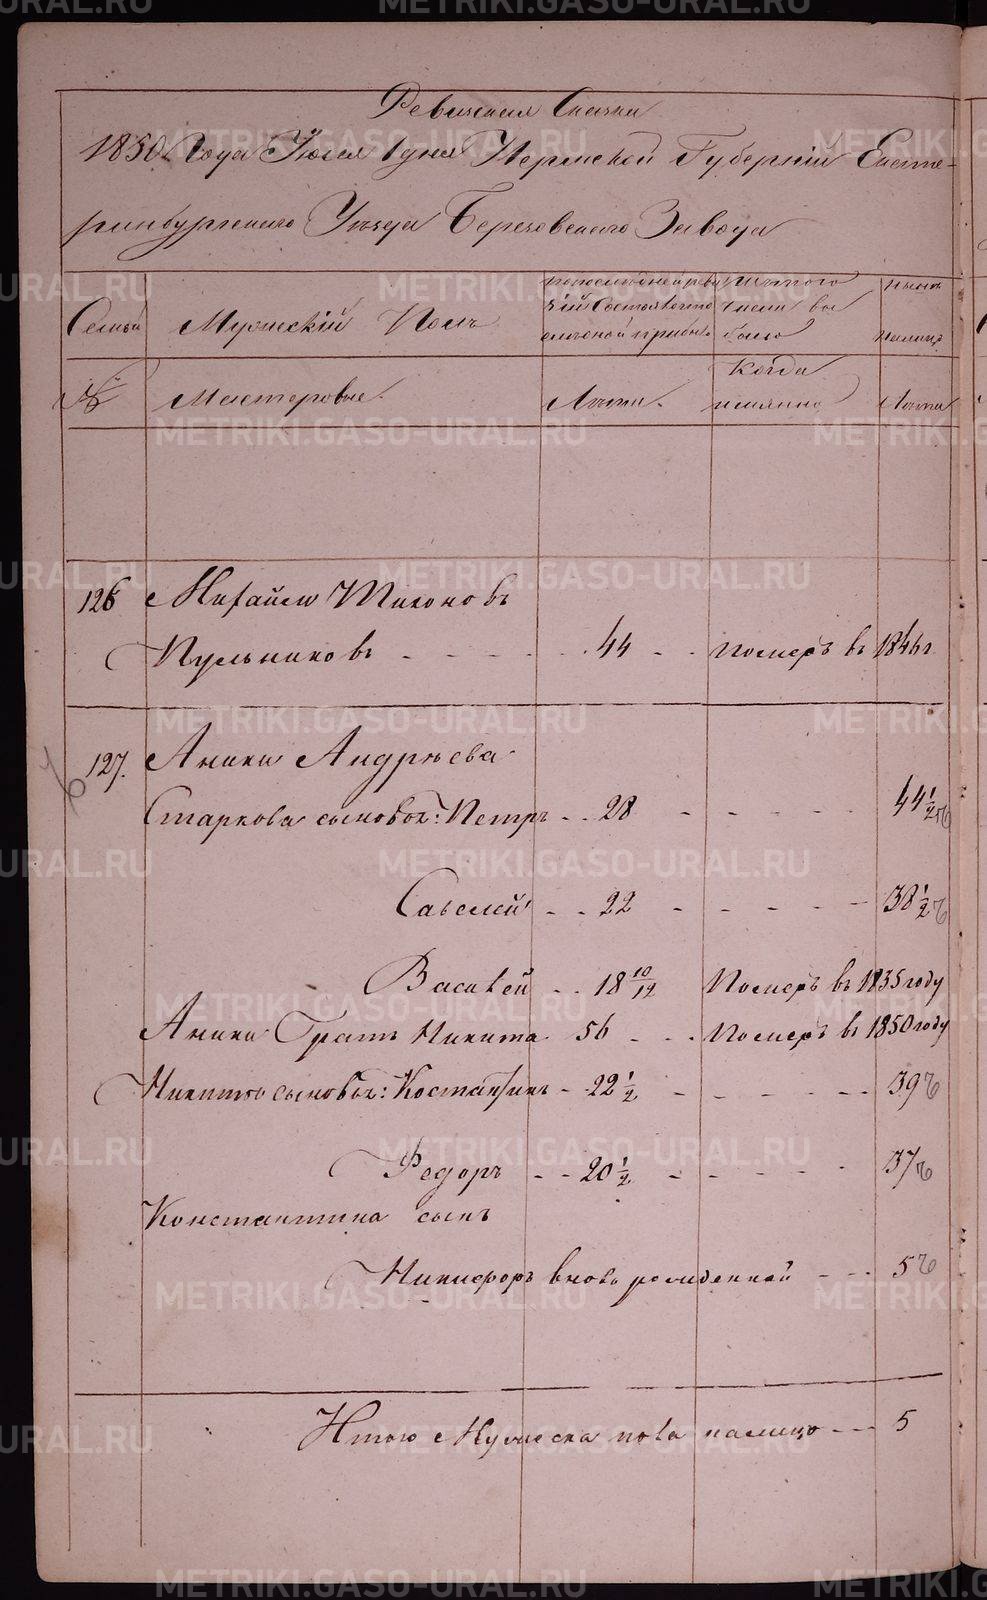 Ревизская Сказка
1850 Года Июля 1 дня Пермской Губернии Екате-
ринбургскаго Уезда Березовскаго Завода
Семьи
Мужский Полъ
по последней реви
зии Состояло и по
сле оной прибыло
Изтого
числа вы
было
Ныне
налицо
№
Мастеровые.
Лета.
Когда
имянно
Лета
126 Михайло Тихоновъ
Пульниковъ - - - - - 44 - - померъ въ 1846 г.
127. Аники Андреева
Старкова сыновья: Петръ - - 28 - - - - - 44 1/2
Савелей - - 22 - - - - - 38 1/2
Василей - - 18 10/12 Померъ въ 1835 году
Аники Братъ Никита 56 - - - померъ въ 1850 году
Никиты сыновья: Костантинъ - 22 1/2 - - - - - - 39
Федоръ - - 20 1/2 - - - - - 37
Константина сынъ
Никифоръ вновь рожденной - - - 5
Итого Мужеска пола налицо - - - 5
METRIKI.GASO-URAL.RU